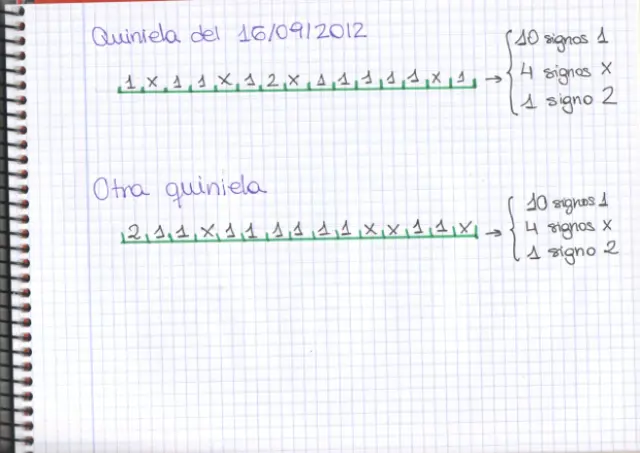 Quiniela del 16/09/2012
1 X 1 1 X 1 2 X 1 1 1 1 1 X 1 → { 10 signos 1
4 signos X
1 signo 2
Otra quiniela
2 1 1 X 1 1 1 1 1 1 X X 1 1 X → { 10 signos 1
4 signos X
1 signo 2